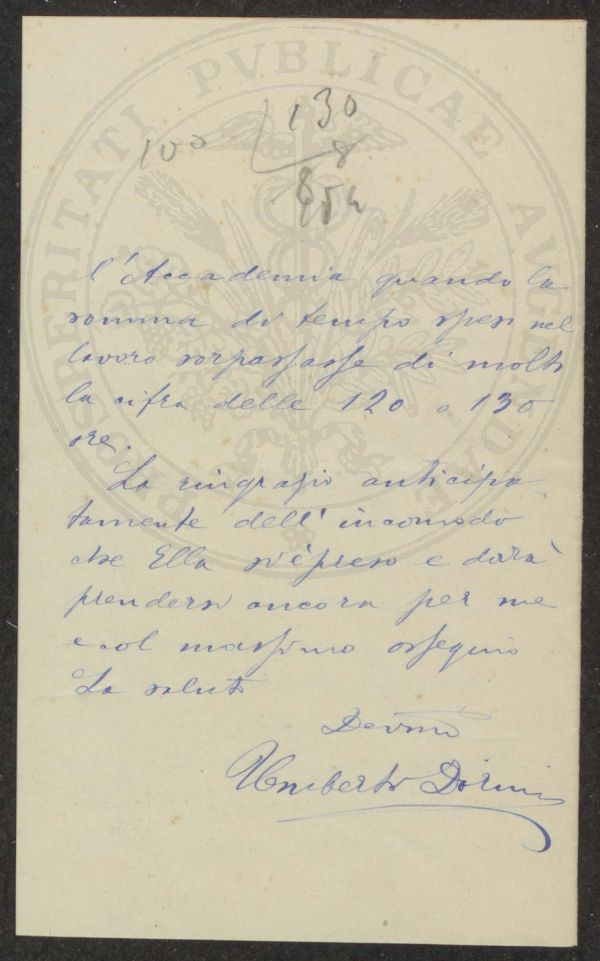 130
100
8
l'Accademia quando la
somma di tempo speso nel
lavoro sorpassasse di molto
la cifra delle 120 o 130
ore.
La ringrazio anticipa
tamente dell'incomodo
che Ella si è preso e dovrà
prendersi ancora per me
e col massimo ossequio
La saluto
Devmo
Umberto Dorini
PROSPERITATI PVBLICAE AVGENDAE